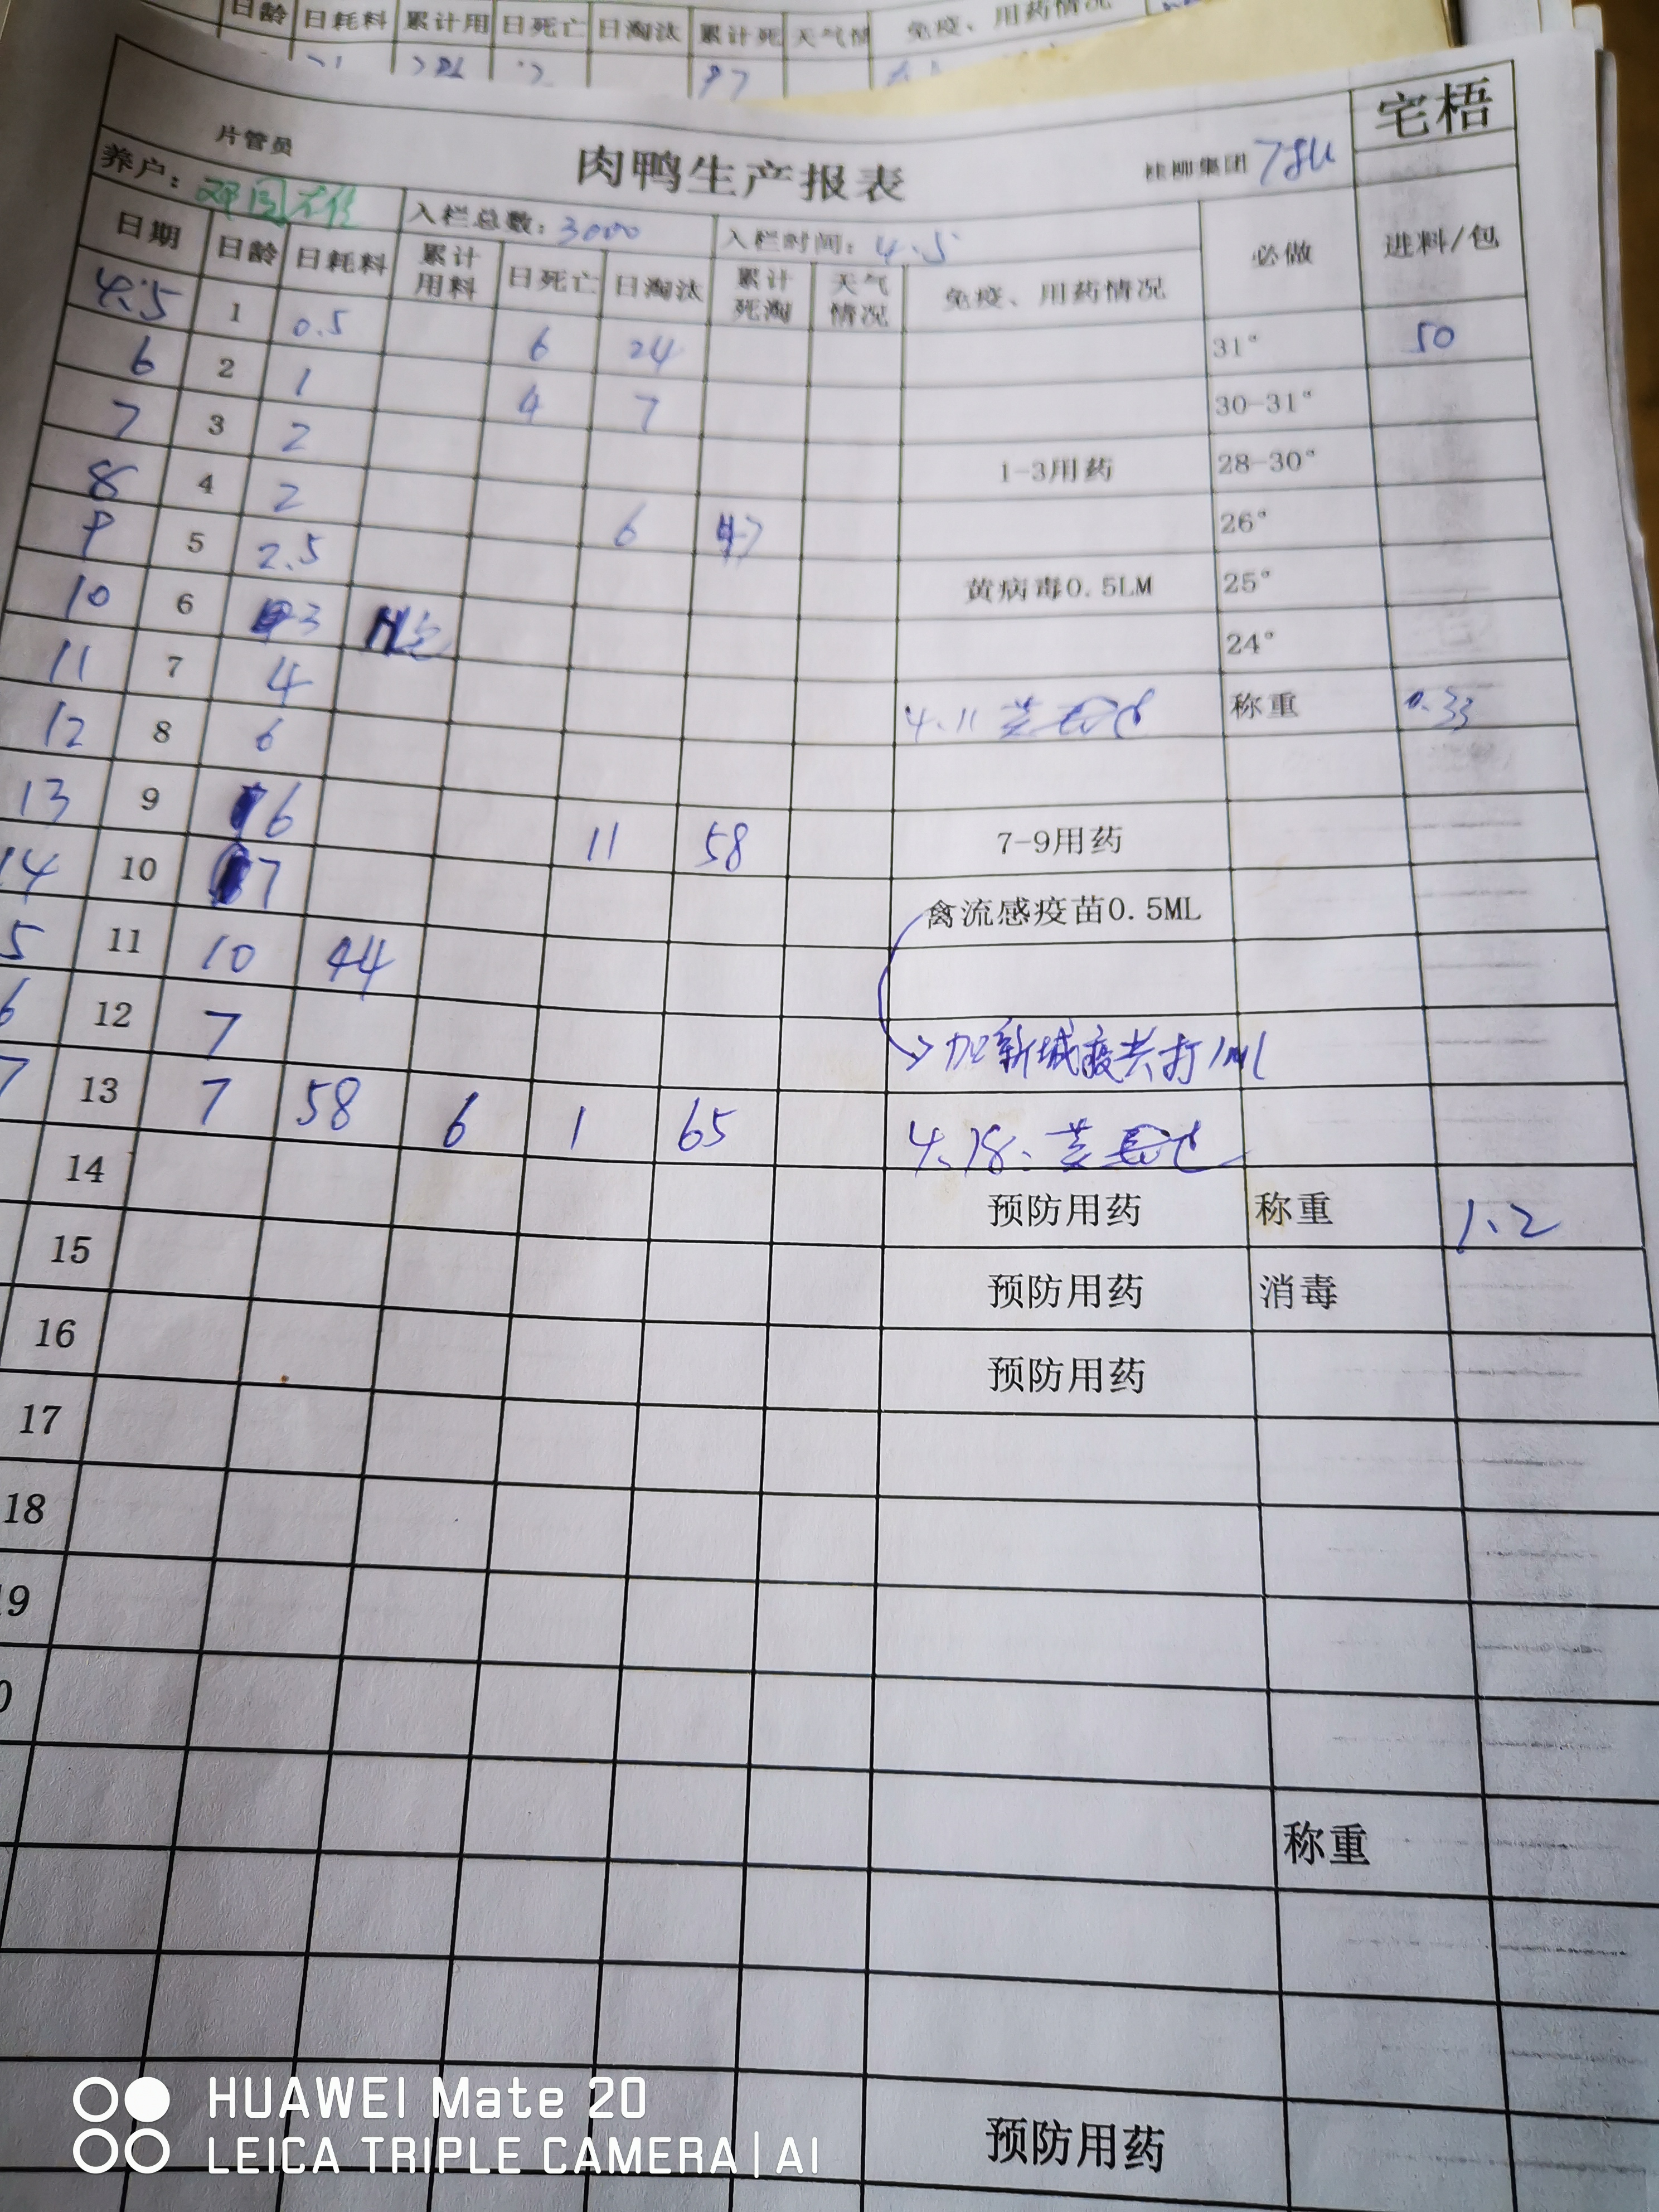 日龄 日耗料 累计用 日死亡 日淘汰 累计死 天气情 免疫、用药情况
97
宅梧
片管员 肉鸭生产报表 桂柳集团
养户： 入栏总数：3000 入栏时间：4.5 必做 进料/包
日期 日龄 日耗料 累计用料 日死亡 日淘汰 累计死淘 天气情况 免疫、用药情况
4.5 1 0.5 6 24 31° 50
6 2 1 4 7 30-31°
7 3 2 1-3用药 28-30°
8 4 2 6 47 26°
9 5 2.5 黄病毒0.5LM 25°
10 6 3 24°
11 7 4 4.11 称重 0.33
12 8 6
13 9 6 11 58 7-9用药
14 10 7 禽流感疫苗0.5ML
5 11 10 44
6 12 7 加新城疫共打1ml
7 13 7 58 6 1 65 4.18.
14 预防用药 称重 1.2
15 预防用药 消毒
16 预防用药
17
18
19
0
称重
预防用药
HUAWEI Mate 20
LEICA TRIPLE CAMERA | AI